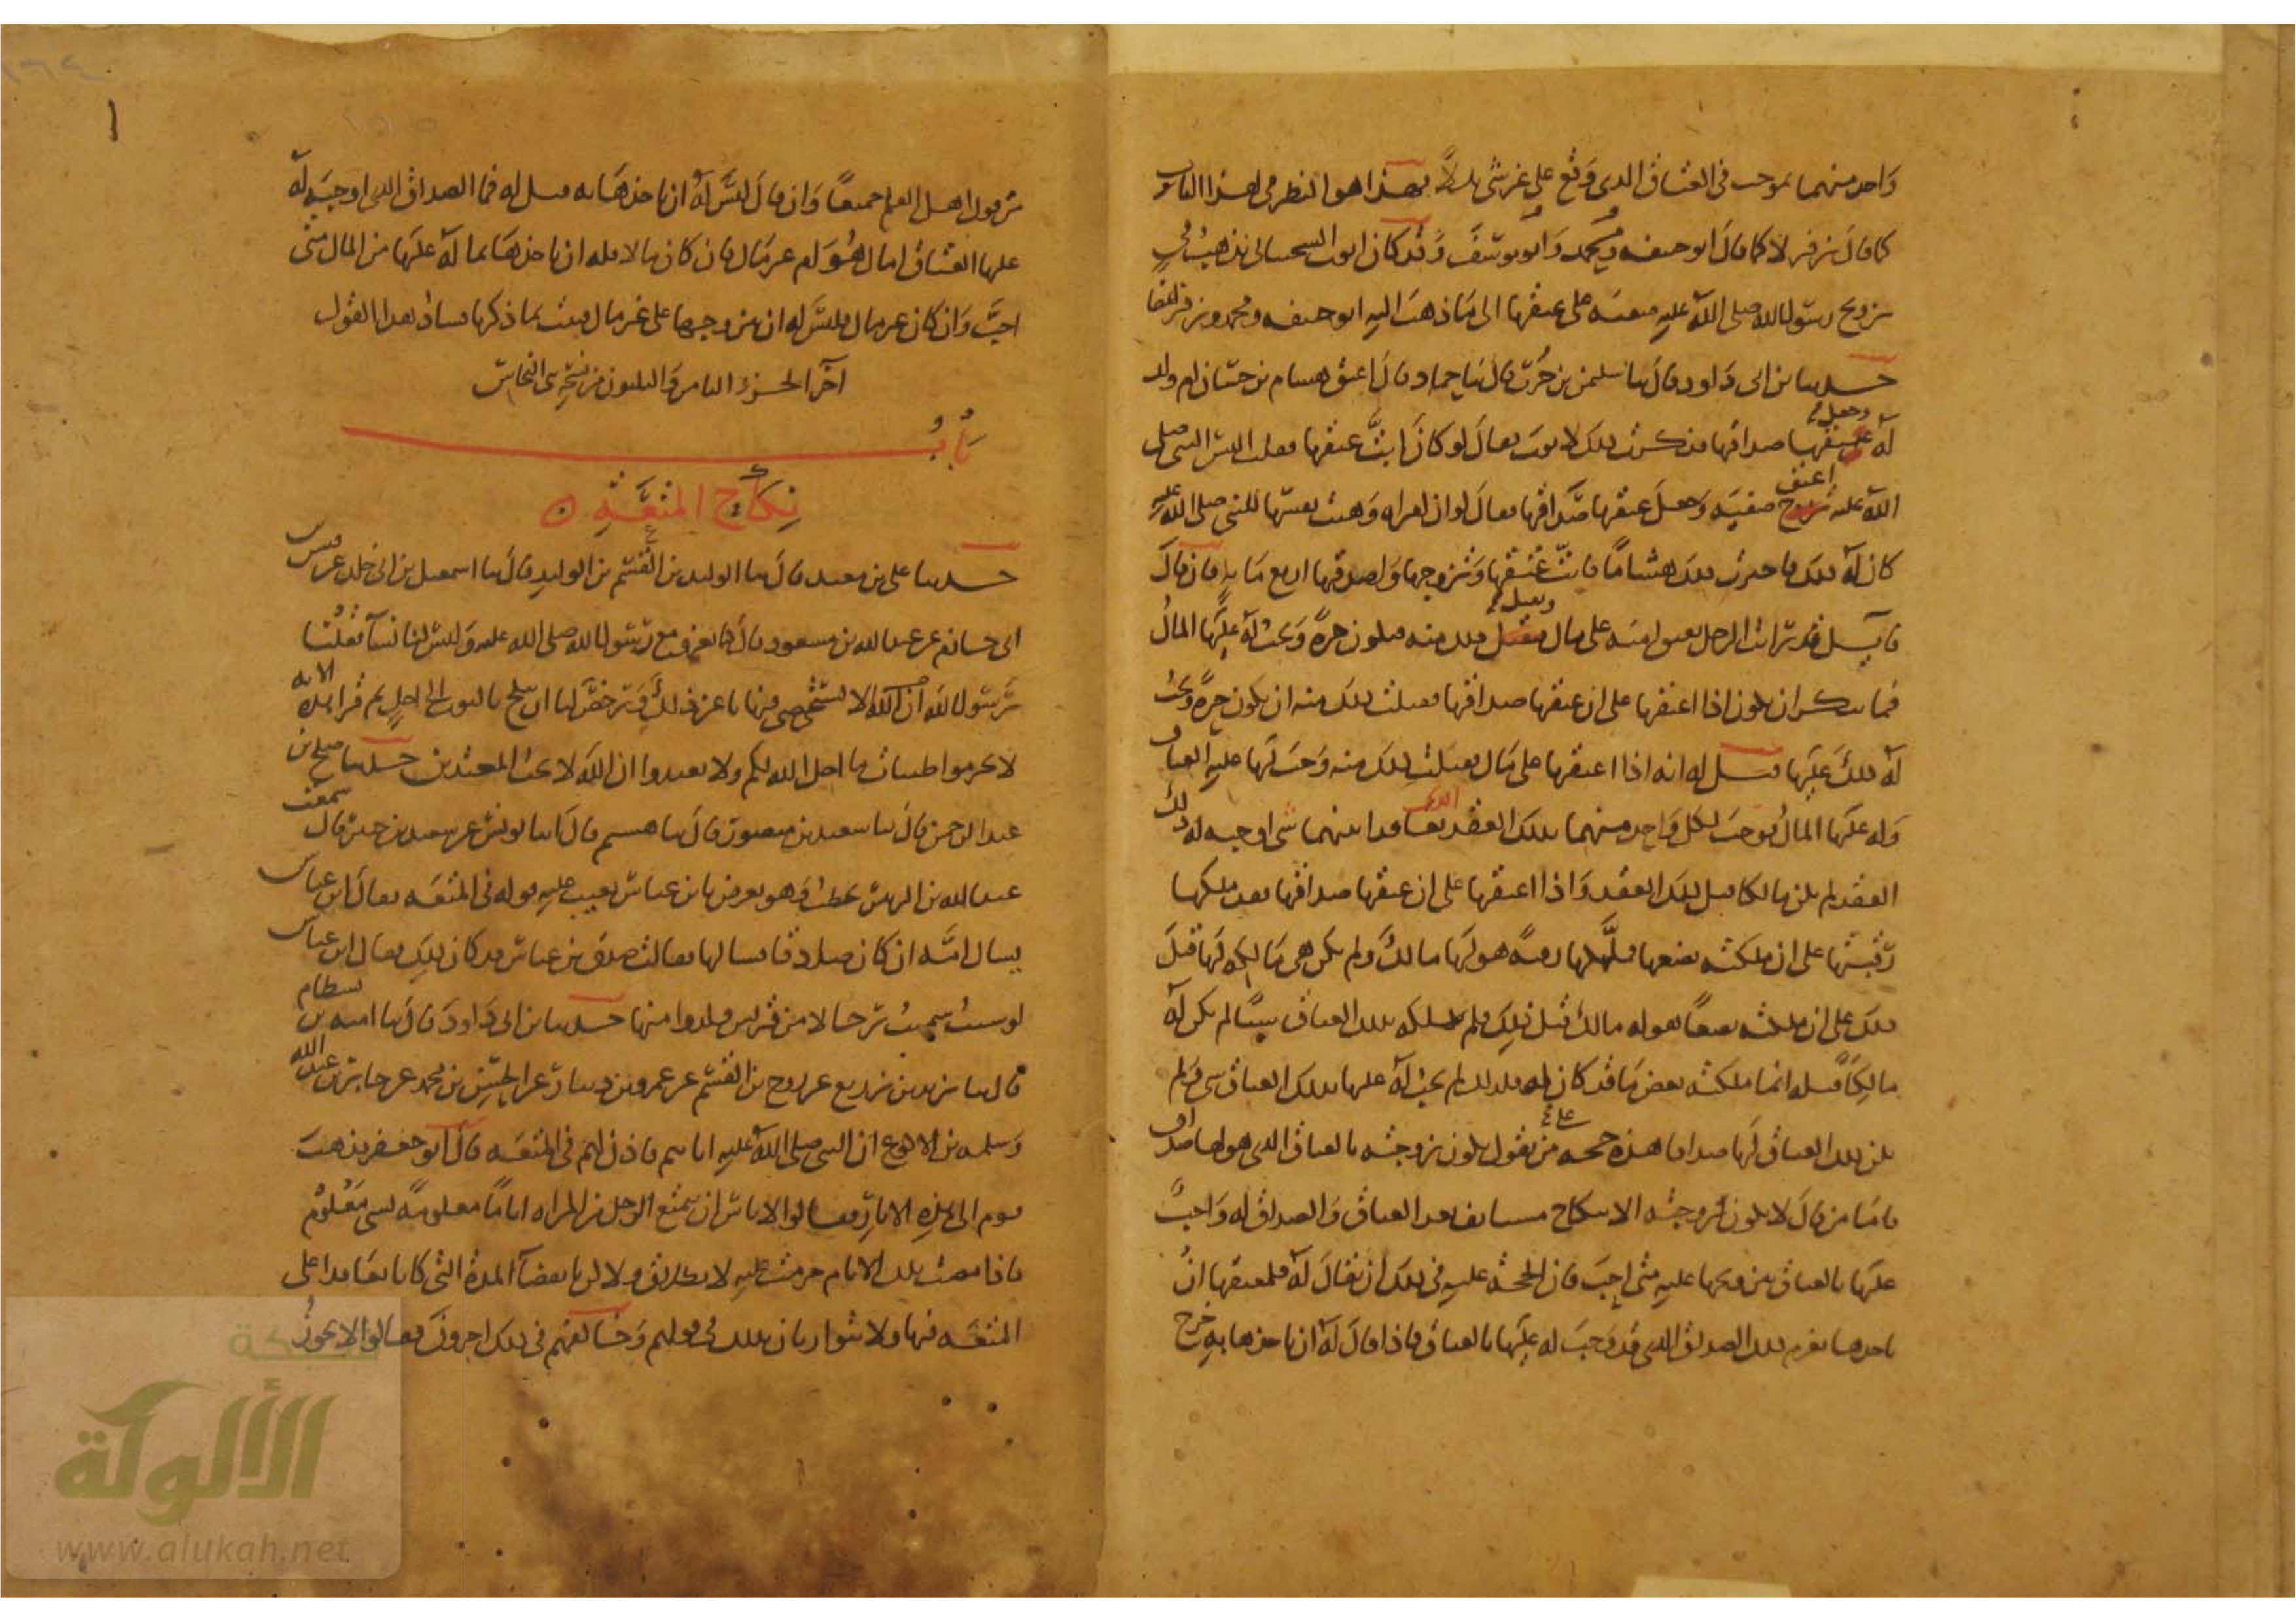 واحد منهما بموجب في العتاق الذي وقع على غير شيء بدلا فهذا هو النظر في هذا الباب
كما قال زفر لا كما قال ابو حنيفة ومحمد وابو يوسف وقد كان ايوب السختياني يذهب في
تزويج رسول الله صلى الله عليه صفية على عتقها الى ما ذهب اليه ابو حنيفة ومحمد وزفر ايضا
حدثنا بن ابي داود قال ثنا سليمن بن حرب قال ثنا حماد قال اعتق هشام بن حسان ام ولد
له وجعل عتقها صداقها فذكرت ذلك لايوب فقال لو كان ابت عتقها فقلت اليس النبي صلى
الله عليه اعتق صفية وجعل عتقها صداقها فقال لو ان امراة وهبت نفسها للنبي صلى الله عليه
كان له ذلك فاخبرت بذلك هشاما فابت عتقها وتزوجها واصدقها اربع مائة فان قال
قائل فقد رايت الرجل يعتق امته على مال فتقبل ذلك منه فتكون حرة ويجب له عليها المال
فما ينكر ان يكون اذا اعتقها على ان عتقها صداقها فقبلت ذلك منه ان تكون حرة ويجب
له ذلك عليها قيل له انه اذا اعتقها على مال فقبلت ذلك منه وجب لها عليه العتاق
وله عليها المال فوجب لكل واحد منهما بذلك العقد الذي تعاقدا بينهما شيء اوجبه له ذلك
العقد لم يكن مالكا قبل ذلك العقد واذا اعتقها على ان عتقها صداقها فقد ملكها
رقبتها على ان ملكته بضعها فملكها رقبة هو لها مالك ولم تكن هي مالكة لها قبل
ذلك على ان ملكته بضعا هو له مالك قبل ذلك فلم تملكه بذلك العتاق شيئا لم يكن له
مالكا قبله انما ملكته بعض ما قد كان له فلذلك لم يجب له عليها بذلك العتاق شيء ولم
يكن ذلك العتاق لها صداقا هذه حجة على من يقول يكون زوجته بالعتاق الذي هو لها صداق
فاما من قال لا يكون زوجته الا بنكاح مستانف بعد العتاق والصداق له واجب
عليها بالعتاق يتزوجها عليه متى احب فان الحجة عليه في ذلك ان يقال له فلمعتقها ان
ياخذها بغرم ذلك الصداق الذي قد وجب له عليها بالعتاق فاذا قال له ان ياخذها به خرج
من قول اهل العلم جميعا وان قال ليس له ان ياخذها به قيل له فما الصداق الذي اوجبه له
عليها العتاق امال هو ام غير مال فان كان مالا فله ان ياخذها بما له عليها من المال متى
احب وان كان غير مال فليس له ان يتزوجها على غير مال فثبت بما ذكرنا فساد هذا القول
اخر الجزو الثامن والثلثون من نسخة بن النحاس
باب
نكاح المتعة
حدثنا علي بن معبد قال ثنا الوليد بن القسم بن الوليد قال ثنا اسمعيل بن ابي خلد عن قيس
بن ابي حازم عن عبد الله بن مسعود قال كنا نغزو مع رسول الله صلى الله عليه وليس لنا نسآ فقلنا
يرسول الله الا نستخصي فنهانا عن ذلك ورخص لنا ان ننكح بالثوب الى اجل ثم قرا هذه الاية
لا تحرموا طيبات ما احل الله لكم ولا تعتدوا ان الله لا يحب المعتدين حدثنا صلح بن
عبد الرحمن قال ثنا سعيد بن منصور قال ثنا هشيم قال ثنا ابو بشر عن سعيد بن جبير قال سمعت
عبد الله بن الزبير يخطب وهو يعرض بابن عباس يعيب عليه قوله في المتعة فقال ابن عباس
يسال امه ان كان صادقا فسالها فقالت صدق بن عباس قد كان ذلك فقال ابن عباس
لو شئت سميت رجالا من قريش ولدوا منها حدثنا بن ابي داود قال ثنا امية بن بسطام
قال ثنا يزيد بن زريع عن روح بن القسم عن عمرو بن دينار عن الحسن بن محمد عن جابر بن عبد الله
وسلمة بن الاكوع ان النبي صلى الله عليه اتاهم فاذن لهم في المتعة قال ابو جعفر فذهب
قوم الى هذه الاثار فقالوا لا باس ان يتمتع الرجل من المراه اياما معلومة بشيء معلوم
فاذا مضت تلك الايام حرمت عليه لا بطلاق ولا لكن بانقضآ المدة التي كانا تعاقدا على
المتعة فيها ولا يتوارثان بذلك في قولهم وخالفهم في ذلك اخرون فقالوا لا يجوز
شبكة
الألوكة
www.alukah.net